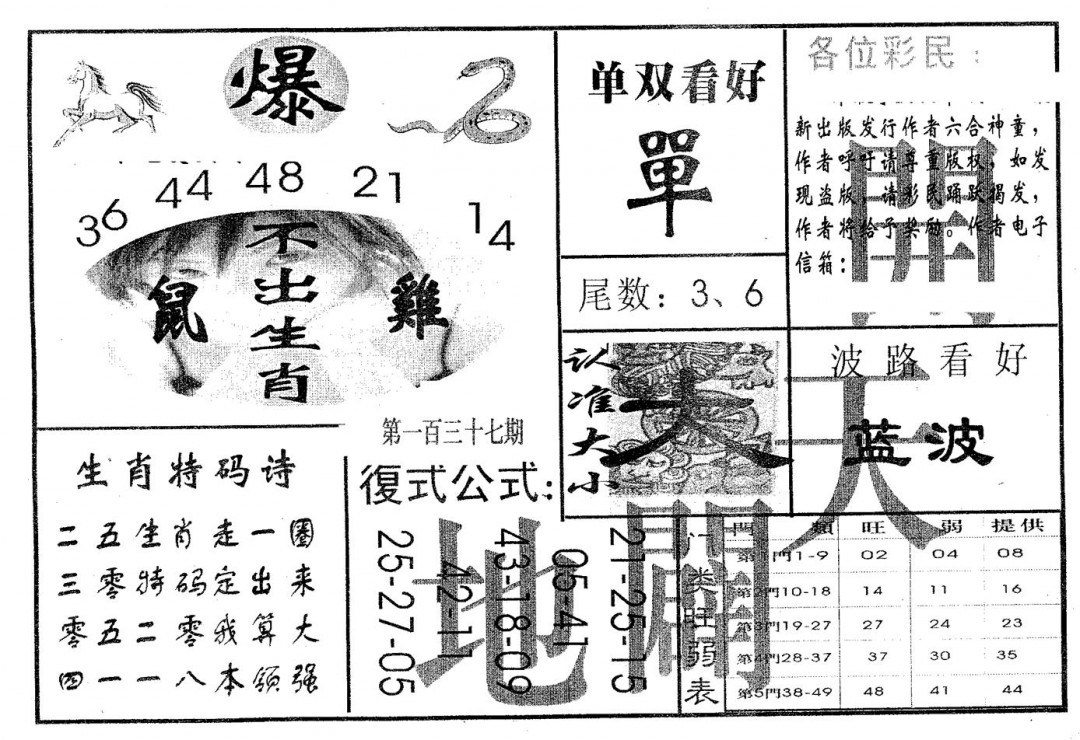 爆
36 44 48 21 14
不出生肖
鼠
雞
单双看好
單
尾数：3、6
各位彩民：
新出版发行作者六合神童，
作者呼吁请尊重版权，如发
现盗版，请彩民踊跃揭发，
作者将给予奖励。作者电子
信箱：
開
认准大小
大
波路看好
蓝波
天
第一百三十七期
生肖特码诗
二五生肖走一圈
三零特码定出来
零五二零我算大
四一一八本领强
復式公式：
25-27-05
42-11
43-18-09
05-41
21-25-15
地
開
门类旺弱表
門類 旺 弱 提供
第1門1-9 02 04 08
第2門10-18 14 11 16
第3門19-27 27 24 23
第4門28-37 37 30 35
第5門38-49 48 41 44